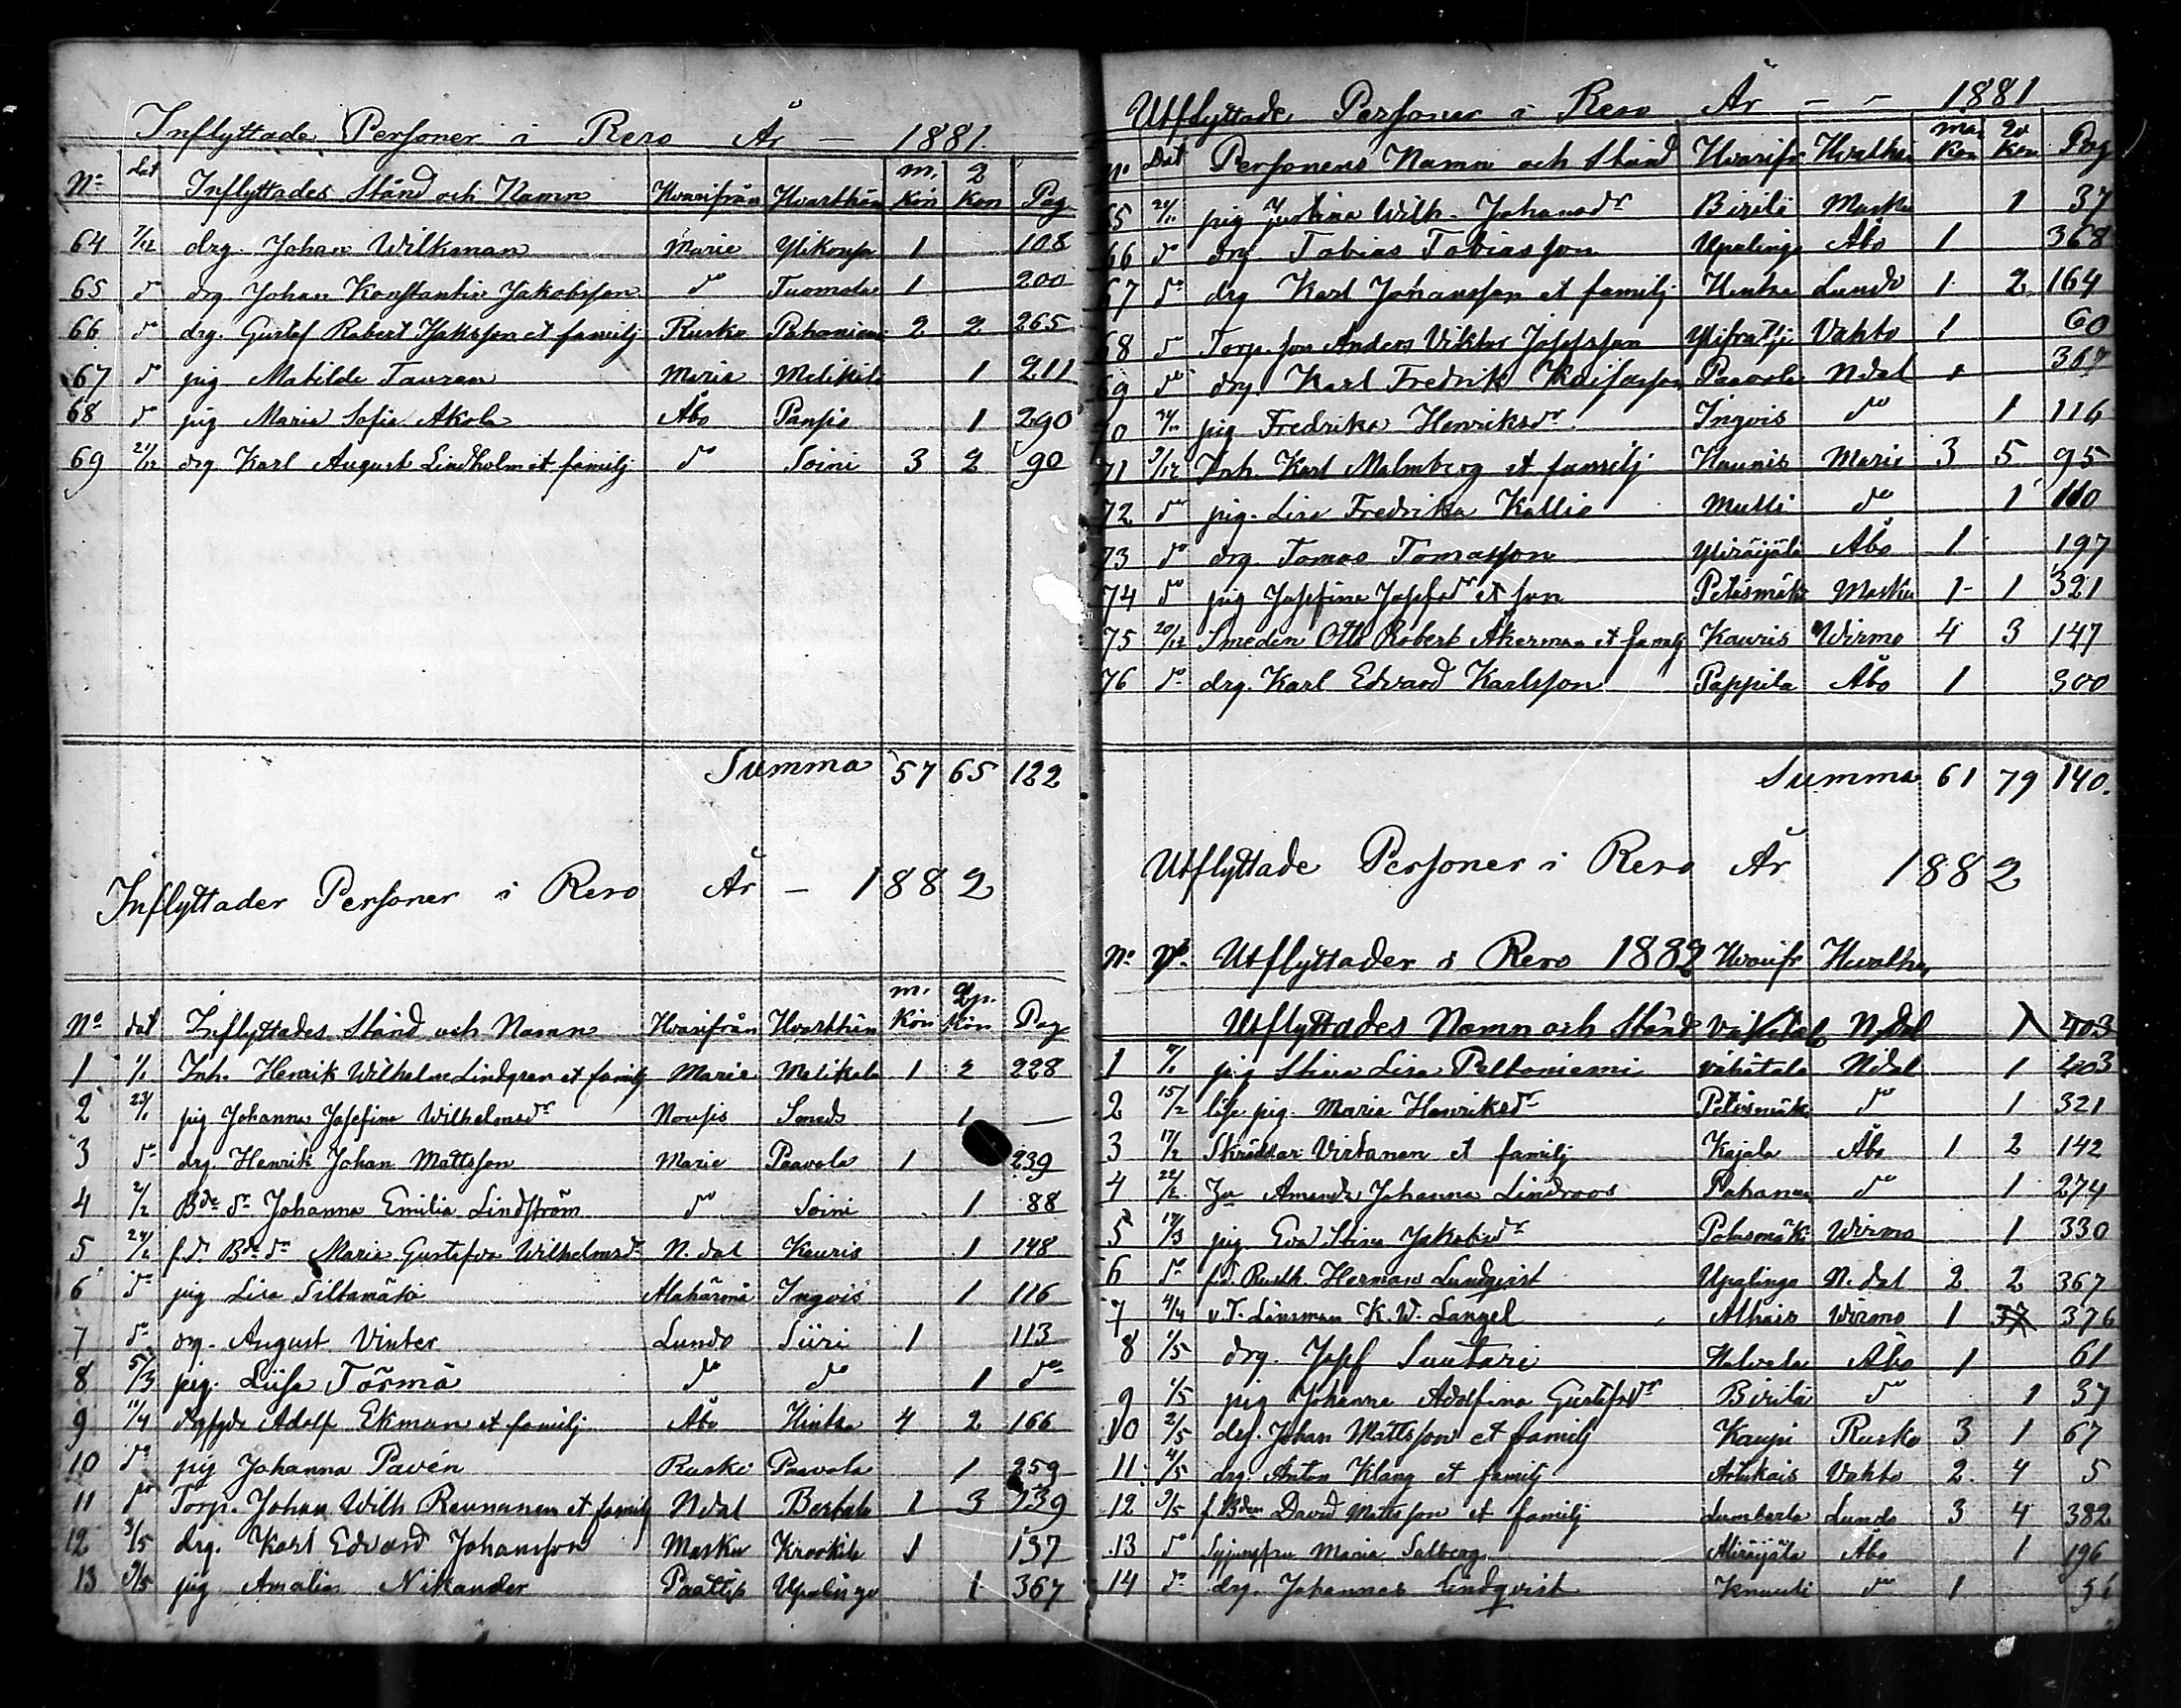 Inflyttade Personer i Reso År — 1881.
No dat Inflyttades Stånd och Namn Hvarifrån Hvarthän m. Kön Q Kön Pag
64 7/12 drg. Johan Wilkman Marie Ylikonsa 1 108
65 do drg. Johan Konstantin Jakobsson do Tuomola 1 200
66 do drg. Gustaf Robert Isaksson et familj Rusko Pahaniemi 2 2 265
67 do pig Matilda Tauren Marie Metikala 1 211
68 do pig Maria Sofia Akola Åbo Pansio 1 290
69 21/12 drg Karl August Lindholm et familj do Soini 3 2 90
Summa 57 65 122
Inflyttader Personer i Reso År — 1882
No dat Inflyttades Stånd och Namn Hvarifrån Hvarthän m. Kön Qp. Kön Pag
1 1/1 Inh. Henrik Wilhelm Lindgren et familj Marie Metikala 1 2 228
2 23/1 pig Johanna Josefina Wilhelmsdr Nousis Smeds 1 —
3 do drg. Henrik Johan Mattsson Marie Paavola 1 239
4 2/2 Bde dr Johanna Emilia Lindström do Soini 1 88
5 24/2 f.d. Bde dr Maria Gustafva Wilhelmsdr N.dal Kauris 1 148
6 do pig Lisa Siltamäki Alahärmä Ingois 1 116
7 do drg. August Vinter Lundo Siiri 1 113
8 5/3 pig. Liisa Törmä do do 1 do
9 11/4 Adolf Ekman et familj Åbo Hintsa 4 2 166
10 do pig Johanna Pavén Rusko Paavola 1 259
11 do Torp. Johan Wilh Reunanen et familj Ndal Bertala 1 3 239
12 3/5 drg. Karl Edvard Johansson Masku Krookila 1 137
13 9/5 pig Amalia Nikander Paattis Upalingo 1 367
Utflyttade Personer i Reso År — — 1881
No Dat Personens Namn och Stånd Hvarifr Hvarthän man Kön Qv Kön Pag
65 21/11 pig Justina Wilh. Johansdr Birilä Masku 1 37
66 do drg Tobias Tobiasson Upalingo Åbo 1 368
67 do drg Karl Johansson et familj Hintsa Lundo 1 2 164
68 do Torp. son Anders Viktor Josefsson Vahto 1 60
69 do drg. Karl Fredrik Paavola Ndal 1 367
70 pig Fredrika Henriksdr Ingois do 1 116
71 9/12 Inh. Karl Malmberg et familj Kaunis Marie 3 5 95
72 do pig. Lisa Fredrika Kallio Mulli do 1 110
73 do drg. Tomas Tomasson Yliräijälä Åbo 1 197
74 do pig Josefina Josefsdr et son Petäsmäki Masku 1 1 321
75 20/12 Smeden Otto Robert Åkerman et familj Kauris Wirmo 4 3 147
76 do drg. Karl Edvard Karlsson Pappila Åbo 1 300
Summa 61 79 140.
Utflyttade Personer i Reso År 1882
No Utflyttader i Reso 1882 Hvarifr Hvarthän
Utflyttades Namn och Stånd Vähätalo N.dal 1 403
1 pig Stina Lisa Peltoniemi Vähätalo Ndal 1 403
2 15/2 pig. Maria Henriksdr Petäsmäki do 1 321
3 17/2 Skräddar Virtanen et familj Kajala Åbo 1 2 142
4 22/2 Amanda Johanna Lindroos Pahanien do 1 274
5 17/3 pig. Eva Stina Jakobsdr Wirmo 1 330
6 do fd. Rusth. Herman Lundqvist Upalingo N.dal 2 2 367
7 4/4 v.T. Länsman K. W. Langel Althais Wirmo 1 37 376
8 1/5 drg. Josef Suutari Halvala Åbo 1 61
9 1/5 pig Johanna Adolfina Gustafsdr Birilä do 1 37
10 2/5 drg. Johan Mattsson et familj Kaupi Rusko 3 1 67
11 4/5 drg. Anton Klang et familj Artukais Vahto 2 4 5
12 9/5 f. Bden David Mattsson et familj Lumberla Lundo 3 4 382
13 do Syjungfru Maria Salberg Aliräijälä Åbo 1 196
14 do drg. Johannes Lindqvist Knuuti do 1